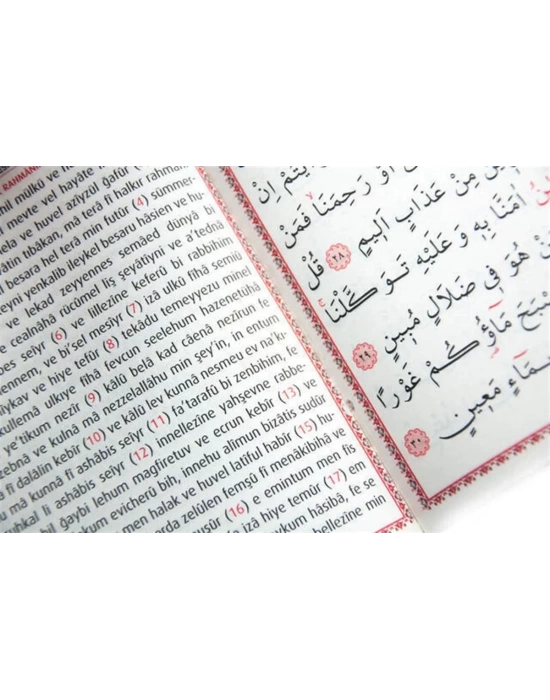 RAHMAN
hil mülkü ve
mevte vel hayâte
ve huvel azîyzül gafûr
tıbâkan, mâ terâ fî halkır rahmân
besara hel terâ min futûr (4) sümmer-
yenkalib ileykel besaru hâsien ve hu-
ve lekad zeyyennes semâed dünyâ bi
cealnâhâ rücûmel liş şeyâtîyni ve a'tednâ
seîyr (6) ve lillezîne keferû bi rabbihim
ennem, ve bi'sel mesîyr (7) izâ ulkû fîhâ semiû
îykav ve hiye tefûr (8) tekâdu temeyyezu minel
kullemâ ulkıye fîhâ fevcun seelehum hazenetühâ
e'tikum nezîr (9) kâlû belâ kad câenâ nezîrun fe
zebnâ ve kulnâ mâ nezzelallâhu min şey'in, in entum
fî dalâlin kebîr (10) ve kâlû lev kunnâ nesmeu ev na'k-
mâ kunnâ fî ashâbis seîyr (11) fa'tarafû bi zenbihim, fe
uhkal li ashâbis seîyr (12) innellezîne yahşevne rabbe-
bil ğaybi lehum magfiretuv ve ecrun kebîr (13) ve
kum evicherû bih, innehu alîmun bizâtis sudûr
men halak ve huvel latîful habîr (15) hu-
arda zelûlen femşû fî menâkibihâ ve
nuşûr (16) e emintum men fis
izâ hiye temûr (17) em
aykum hâsibâ, fe se
bellezîne min
اِنْ
اَوْ رَحِمَنَا فَمَنْ
مِنْ عَذَابٍ اَلٖيمٍ ﴿٢٨﴾ قُلْ
اٰمَنَّا بِهٖ وَعَلَيْهِ تَوَكَّلْنَا
هُوَ فٖي ضَلَالٍ مُبٖينٍ ﴿٢٩﴾
مَاؤُكُمْ غَوْرًا
مَعٖينٍ ﴿٣٠﴾